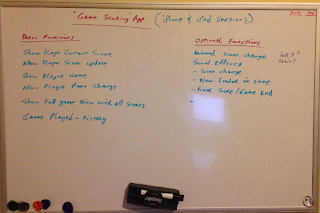 "Game Scoring" App (iPhone & iPad Versions)
Basic Functions
Show Player Current Score
Allow Player Score update
Show Player Name
Allow Player Name Change
Show Full game View with all scores
Games Played - History
Optional Functions
Animated Score change
Sound Effects
- Score change
- New Leader in Game
- Final Score/Game End
-